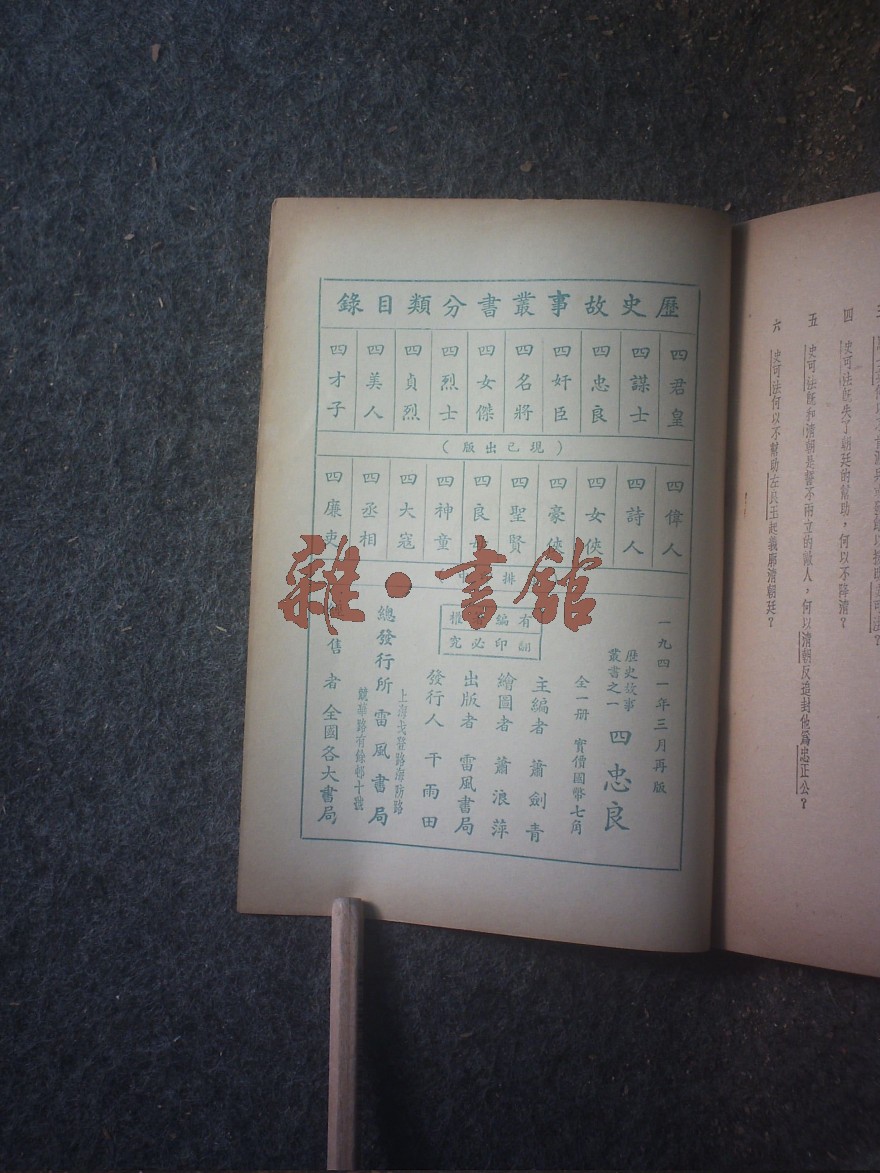 四 史可法既失了朝廷的幫助，何以不降清？
五 史可法既和清朝是誓不兩立的敵人，何以清朝反追封他為忠正公？
六 史可法何以不幫助左良玉起義廓清朝廷？
歷史故事叢書分類目錄
四君皇
四謀士
四忠良
四奸臣
四名將
四女傑
四烈士
四貞烈
四美人
四才子
（現已出版）
四偉人
四詩人
四女俠
四豪俠
四聖賢
四良
四神童
四大寇
四丞相
四廉吏
排
一九四一年三月再版
歷史故事叢書之一
四忠良
全一册 實價國幣七角
有編權
翻印必究
主編者 蕭劍青
繪圖者 蕭浪萍
出版者 雷風書局
發行人 干雨田
總發行所 雷風書局
上海戈登路海防路
競華路有餘邨十號
售者 全國各大書局
雜·書館